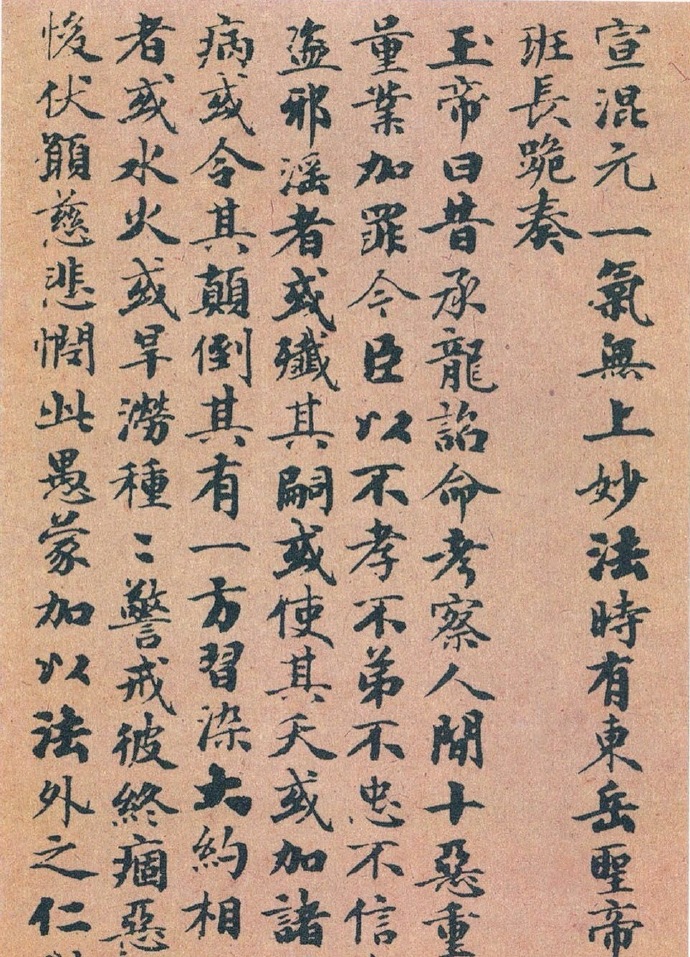 宣混元一氣無上妙法時有東岳聖帝
班長跪奏
玉帝曰昔承龍詔命考察人間十惡重
量業加罪今臣以不孝不弟不忠不信
盜邪滛者或殲其嗣或使其夭或加諸
病或令其顛倒其有一方習染大約相
者或水火或旱澇種〻警戒彼終痼惡
悛伏願慈悲憫此愚蒙加以法外之仁